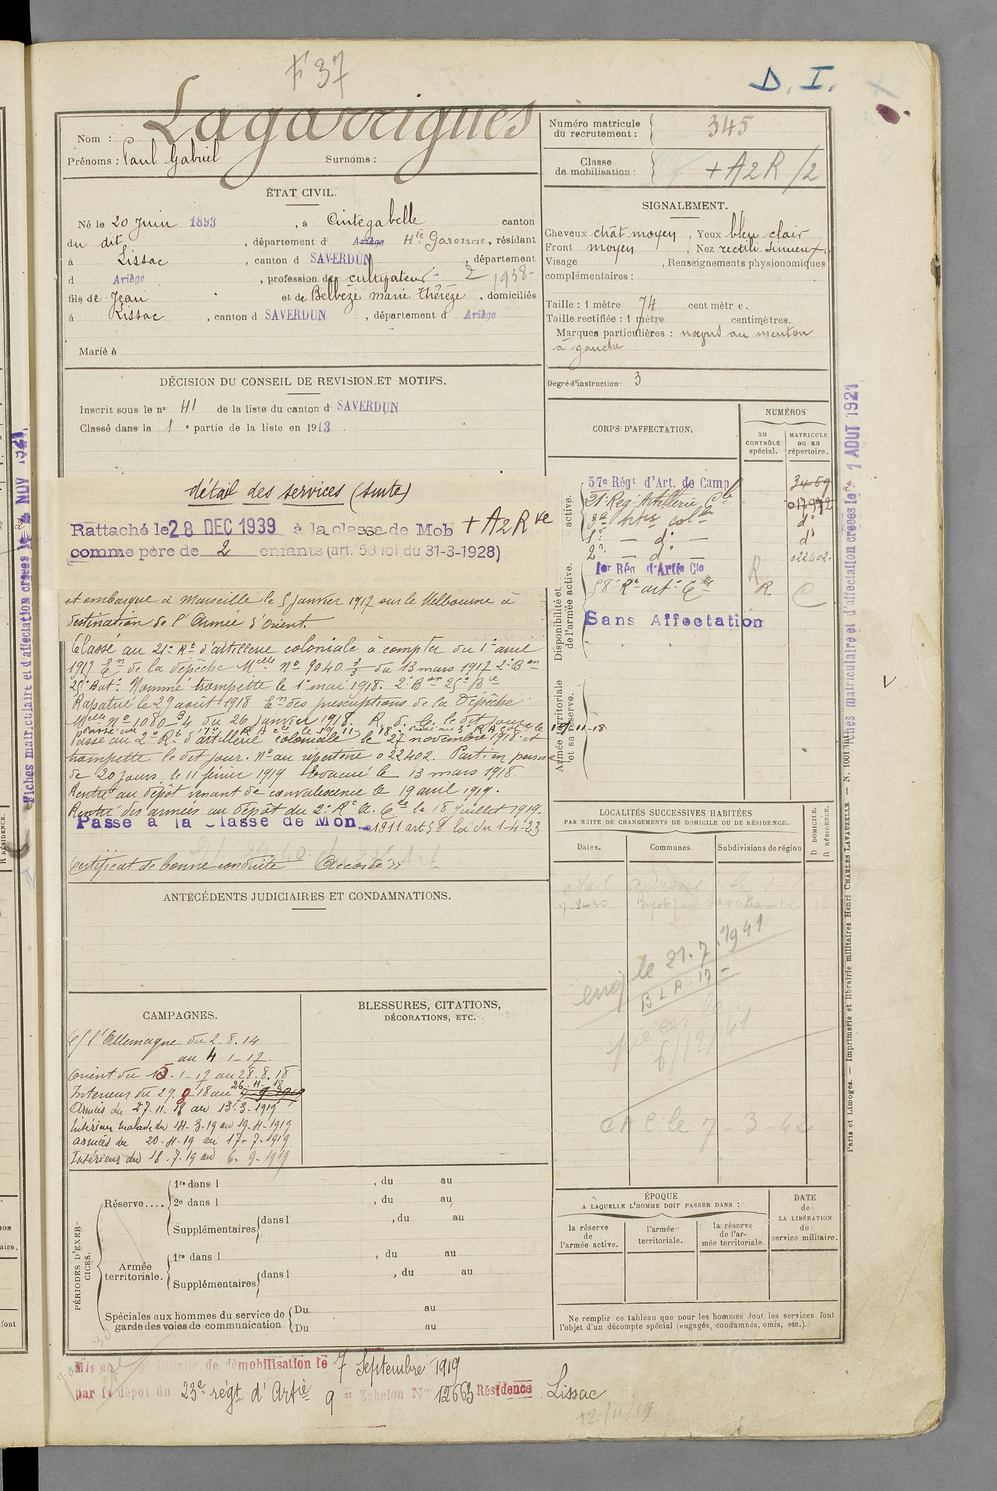 F 37
D. I.
Nom : Lagarrigues
Prénoms : Paul Gabriel Surnoms :
Numéro matricule du recrutement : 345
Classe de mobilisation : + A2R/2
ÉTAT CIVIL.
Né le 20 Juin 1893, à Cintegabelle canton
du dit, département d Ariège Hte Garonne, résidant
à Lissac, canton d SAVERDUN, département
d Ariège, profession de cultivateur 2 1938
fils de Jean et de Belvèze marie thérèze, domiciliés
à Lissac, canton d SAVERDUN, département d Ariège
Marié à
SIGNALEMENT.
Cheveux chât moyen, Yeux bleu clair
Front moyen, Nez rectili sinueux.
Visage , Renseignements physionomiques
complémentaires :
Taille : 1 mètre 74 centimètre.
Taille rectifiée : 1 mètre centimètres.
Marques particulières : nœvus au menton
à gauche
Degré d'instruction : 3
DÉCISION DU CONSEIL DE REVISION ET MOTIFS.
Inscrit sous le n° 41 de la liste du canton d SAVERDUN
Classé dans la 1e partie de la liste en 1913
détail des services (suite)
Rattaché le 28 DEC 1939 à la classe de Mob + A2R ve
comme père de 2 enfants (art. 58 loi du 31-3-1928)
et embarqué à Marseille le 5 janvier 1917 sur le Melbourne à
destination de l'Armée d'Orient.
Classé au 21e Rt d'artillerie coloniale à compter du 1er avril
1917 En de la dépêche Mlle No 9040 3/3 du 13 mars 1917 2e Bon
25e Batie. Nommé trompette le 1er mai 1918. 2e Bon 25e Bie
Rapatrié le 29 août 1918 En des prescriptions de la Dépêche
Mlle No 1080 3/4 du 26 janvier 1918.
Passé au 2e Rt d'artillerie coloniale le 27 novembre 1918 et
trompette le dit jour. No au répertoire 022402. Parti en perm
de 20 jours le 11 février 1919 Evacué le 13 mars 1918
Rentré au dépôt venant de convalescence le 19 avril 1919.
Rentré des armées au dépôt du 2e Rt A. Cle le 18 juillet 1919.
Passé à la Classe de Mon. 1911 art 58 loi du 1-4-23
Certificat de bonne conduite Accordé
CORPS D'AFFECTATION.
NUMÉROS
au CONTRÔLE spécial.
MATRICULE ou au répertoire.
active.
57e Régt d'Art. de Camp
21e Reg Artillerie Cle
2e — d° —
1er Rég d'Artie Cle
58e Rt art. Cle
Sans Affectation
022402
R
R
C
Disponibilité et Réserve de l'armée active.
Armée territoriale et sa réserve.
ANTÉCÉDENTS JUDICIAIRES ET CONDAMNATIONS.
LOCALITÉS SUCCESSIVES HABITÉES
PAR SUITE DE CHANGEMENTS DE DOMICILE OU DE RÉSIDENCE.
Dates. Communes. Subdivisions de région
D DOMICILE. R RÉSIDENCE.
le 21.7.1941
CAC le 7-3-42
CAMPAGNES.
C/ l'Allemagne du 2.8.14
au 4-1-17.
Orient du 15.1-17 au 28.8.18
Intérieur du 29.8 18 au 26.11.18
Armées du 27.11.18 au 13.3.1919
Intérieur malade du 14.3.19 au 19.4.1919
Armées du 20-4.19 au 17-7.1919
Intérieur du 18.7.19 au 6.9.1919
BLESSURES, CITATIONS, DÉCORATIONS, ETC.
PÉRIODES D'EXERCICES.
Réserve....
1re dans l , du au
2e dans l , du au
Supplémentaires dans l , du au
Armée territoriale.
1re dans l , du au
Supplémentaires dans l , du au
Spéciales aux hommes du service de garde des voies de communication
Du au
Du au
ÉPOQUE
A LAQUELLE L'HOMME DOIT PASSER DANS :
la réserve de l'armée active.
l'armée territoriale.
la réserve de l'armée territoriale.
DATE de LA LIBÉRATION du service militaire.
Ne remplir ce tableau que pour les hommes dont les services font
l'objet d'un décompte spécial (engagés, condamnés, omis, etc.).
Mis en de démobilisation le 7 Septembre 1919
par le dépôt du 23e régt d'Artie 9e Echelon No 12663 Résidence Lissac
12/11/19
Paris et Limoges. — Imprimerie et librairie militaires Henri CHARLES-LAVAUZELLE
Fiches matriculaire et d'affectation créées le 1 AOUT 1921
Fiches matriculaire et d'affectation créées le NOV 1921